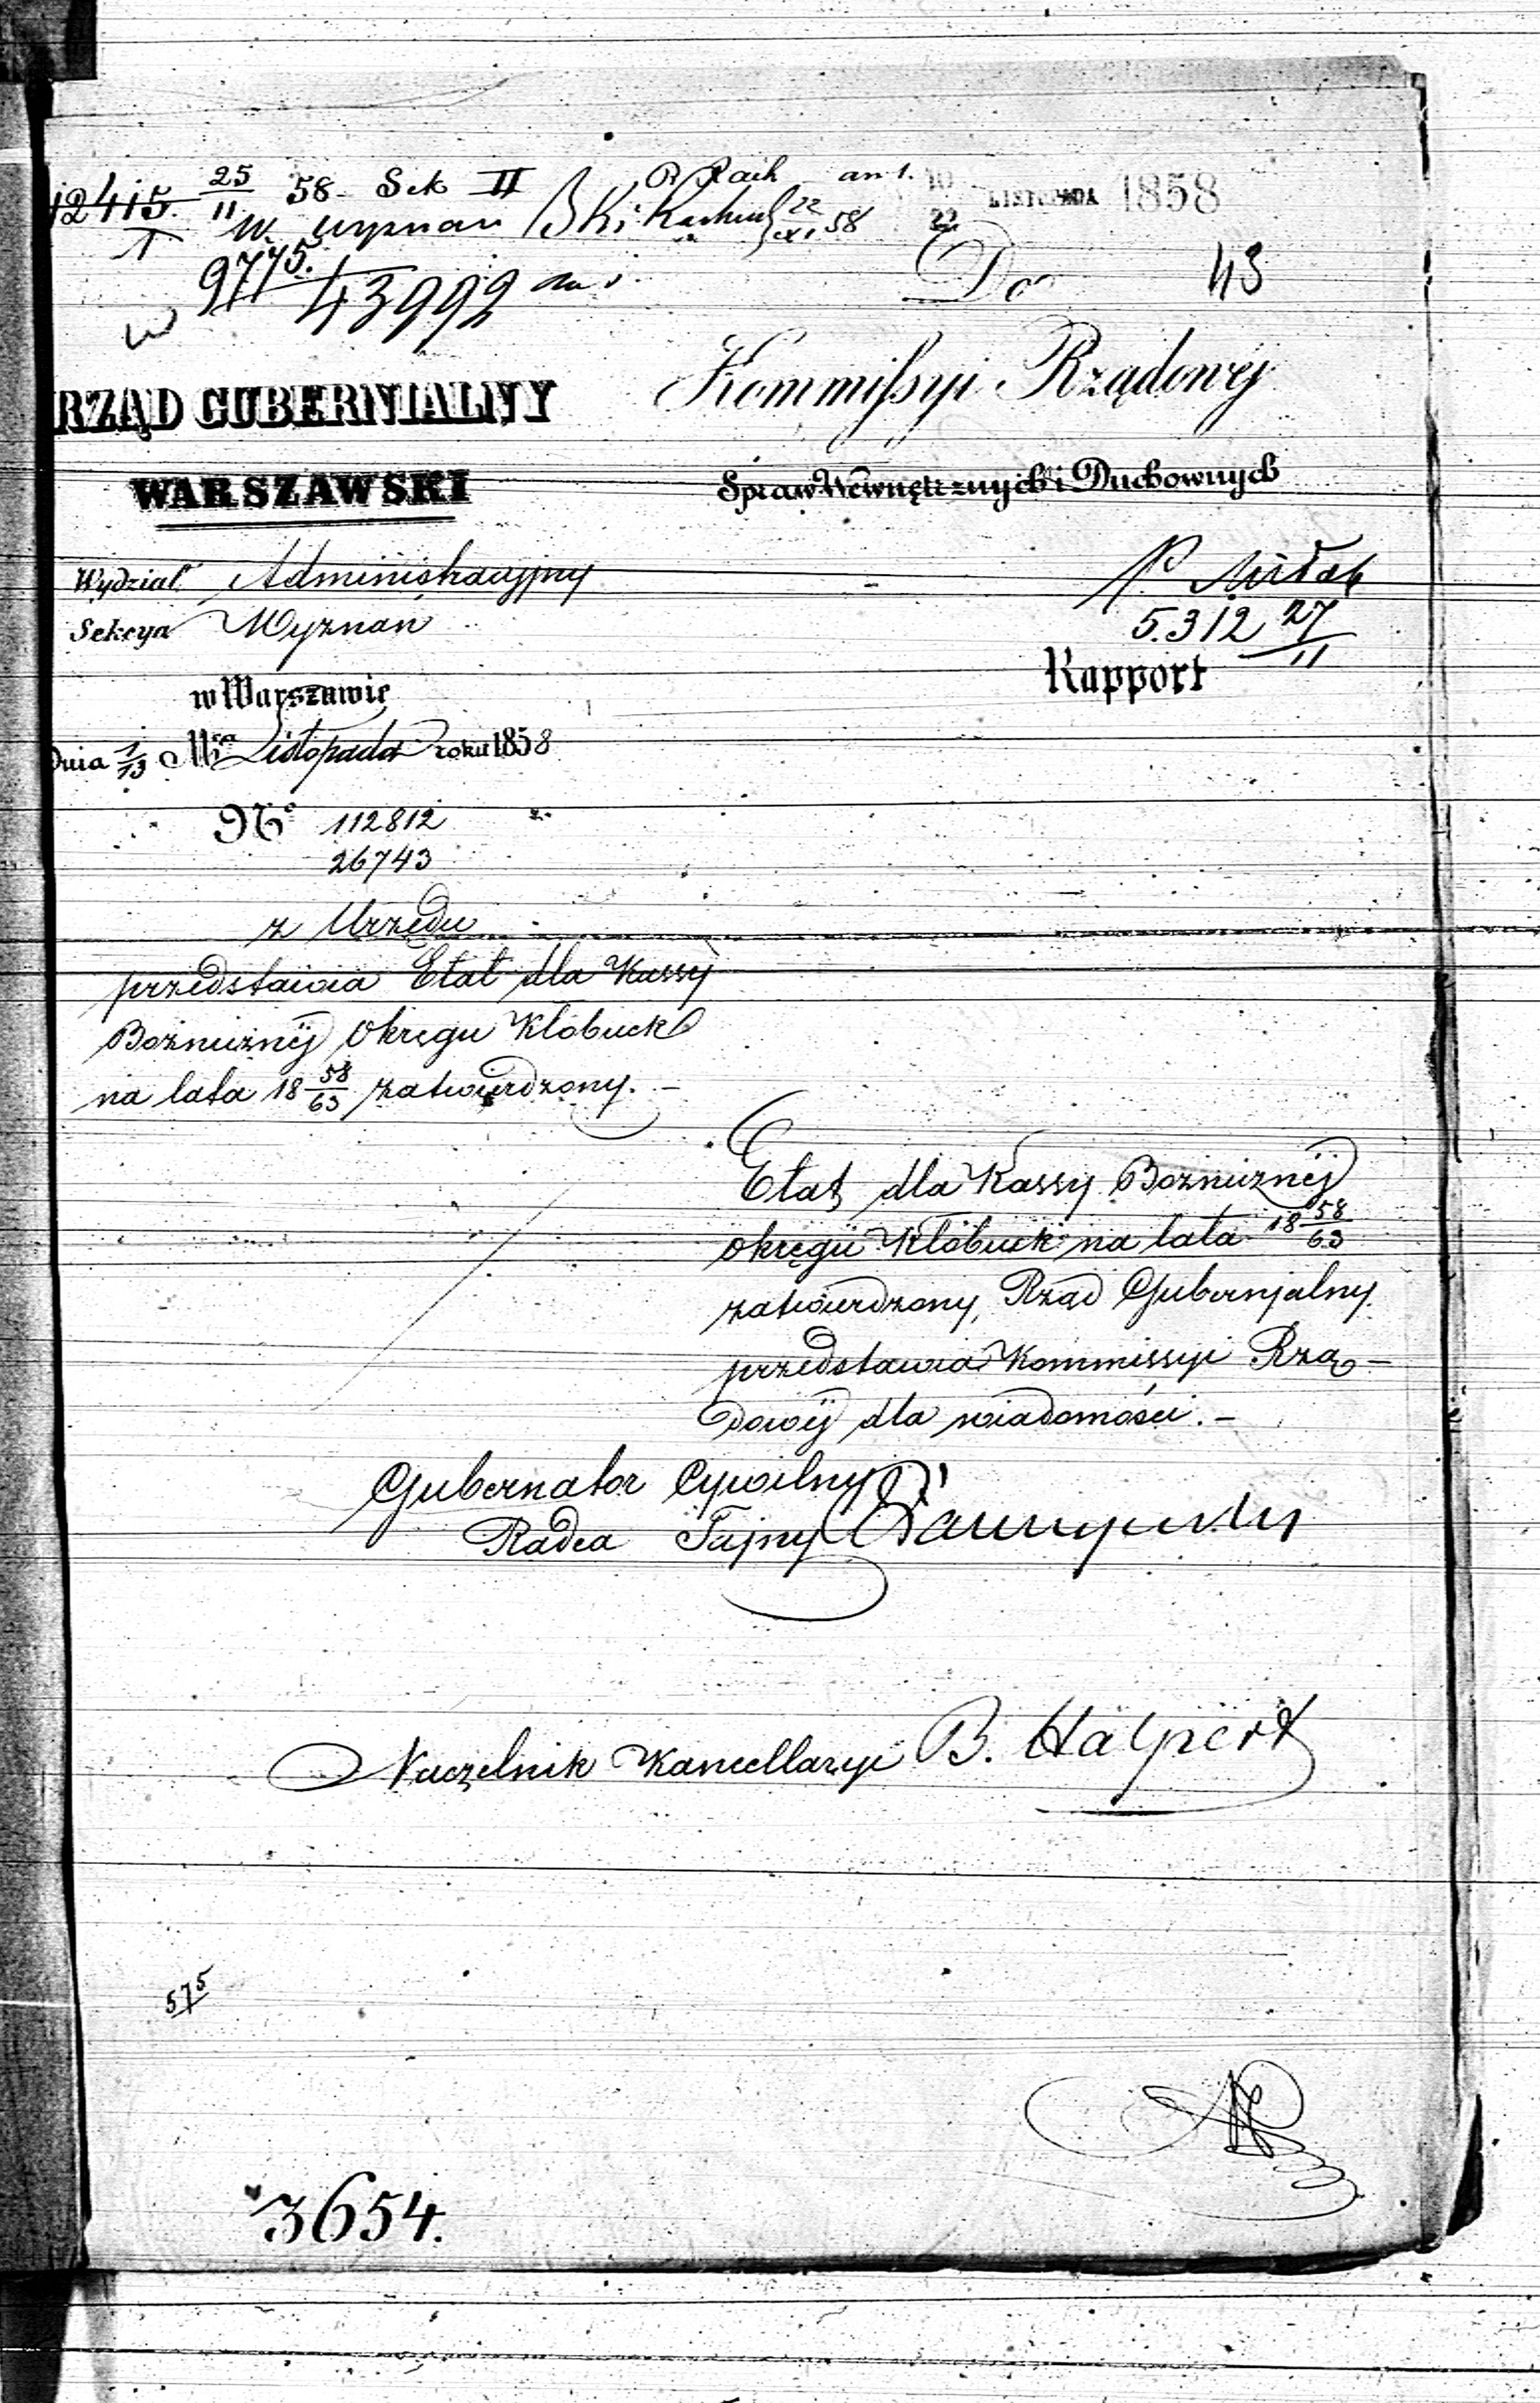 12415. 25/11 58 Sek II
W. wyznań
10/22 LISTOPADA 1858
9775.
43992
Do
43
RZĄD GUBERNIALNY
WARSZAWSKI
Kommissyi Rządowej
Spraw Wewnętrznych i Duchownych
Wydział Administracyjny
Sekcya Wyznań
5.312 27/11
Rapport
w Warszawie
Dnia 1/13 Mca Listopada roku 1858
No 112812
26743
z Urzędu
przedstawia Etat dla Kassy
Bożniznéj Okręgu Kłobuck
na lata 18 58/63 zatwierdzony. –
Etat dla Kassy Bożniznéj
okręgu Kłobuck na lata 18 58/63
zatwierdzony, Rząd Gubernjalny
przedstawia Kommissyi Rzą-
dowéj dla wiadomości. –
Gubernator Cywilny
Radca Tajny
Naczelnik Kancellaryi B. Halpert
575
3654.